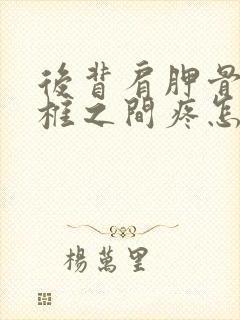 後背肩胛骨
柱之間疼怎
楊萬里